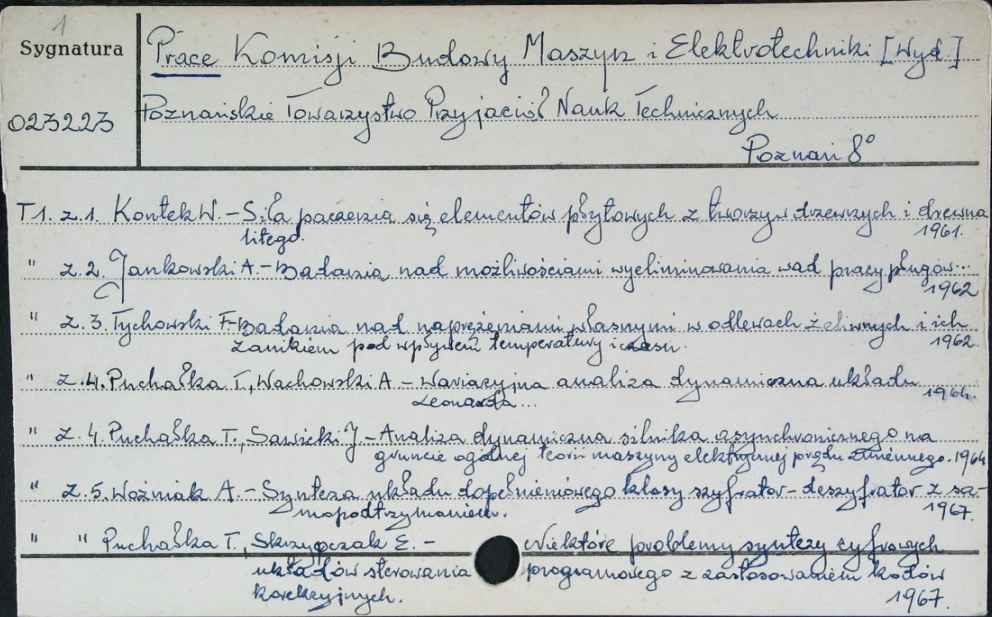 1
Sygnatura
023223
Prace Komisji Budowy Maszyn i Elektrotechniki [Wyd.]
Poznańskie Towarzystwo Przyjaciół Nauk Technicznych
Poznań 8°
T1. z.1. Kontek W. - Siła paczenia się elementów płytowych z tworzyw drzewnych i drewna
litego. 1961.
" z.2. Jankowski A. - Badania nad możliwościami wyeliminowania wad pracy pługów...
1962
" z.3. Tychowski F. - Badania nad naprężeniami własnymi w odlewach żeliwnych i ich
zanikiem pod wpływem temperatury i czasu. 1962
" z.4. Puchałka T., Wachowski A - Wariacyjna analiza dynamiczna układu
Leonarda... 1964.
" z.4. Puchałka T., Sawicki J. - Analiza dynamiczna silnika asynchronicznego na
gruncie ogólnej teorii maszyny elektrycznej prądu zmiennego. 1964
" z.5. Woźniak A. - Synteza układu dopełnieniowego klasy szyfrator - deszyfrator z sa-
mopodtrzymaniem. 1967.
" " Puchałka T., Skrzypczak E. - Niektóre problemy syntezy cyfrowych
układów sterowania programowego z zastosowaniem kodów
korekcyjnych. 1967.